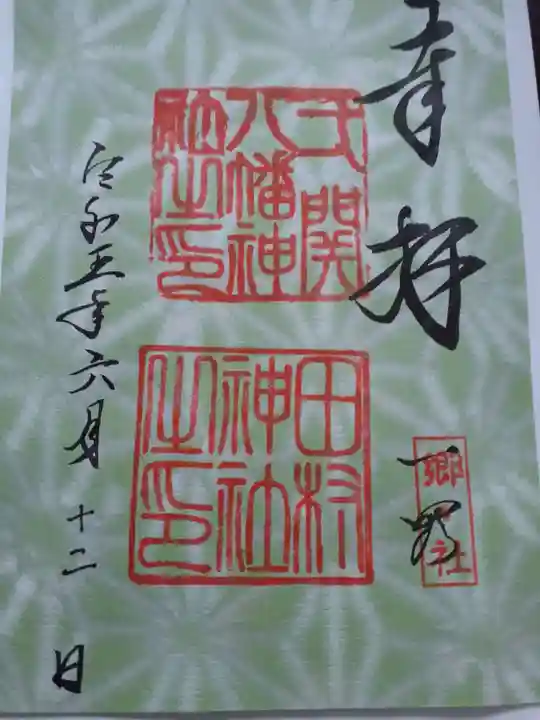 奉拝
一関
郷社
弌関
八幡神
社之印
田村
神社
之印
令和五年六月十二日